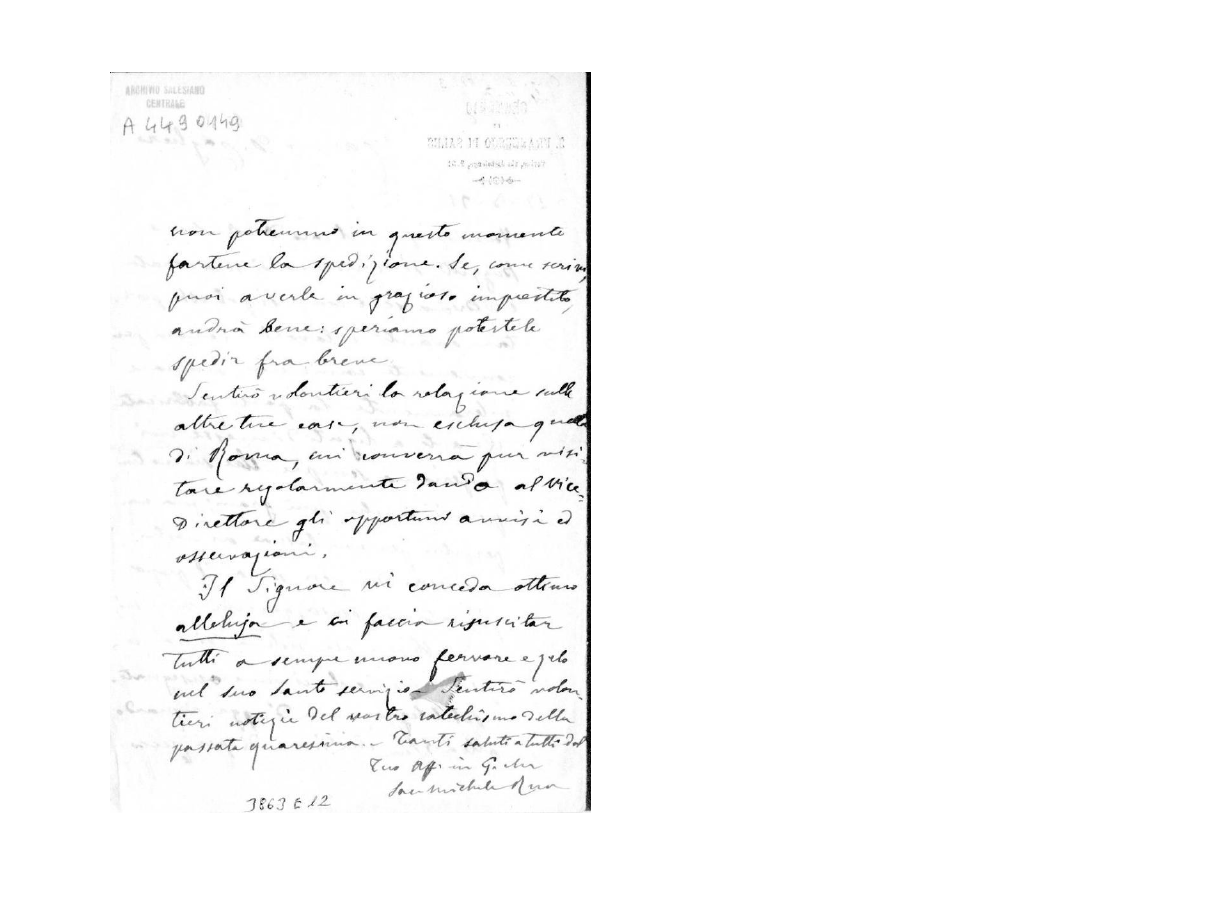 ARCHIVIO SALESIANO
CENTRALE
A 449 0149
non potremmo in questo momento
fartene la spedizione. Se, come scrivi,
puoi averle in grazioso imprestito,
andrà bene: speriamo potertele
spedir fra breve
Sentirò volontieri la relazione sulle
altre tue case, non esclusa quella
di Roma, cui converrà pur visi-
tare regolarmente dando al Vice-
Direttore gli opportuni avvisi ed
osservazioni.
Il Signore vi conceda ottimo
alleluja e ci faccia risuscitar
tutti a sempre nuovo fervore e zelo
nel suo santo servizio. Sentirò volon-
tieri notizie del vostro catechismo della
passata quaresima. - Tanti saluti a tutti dal
Tuo aff. in G.
Sac. Michele Rua
3863 E 12